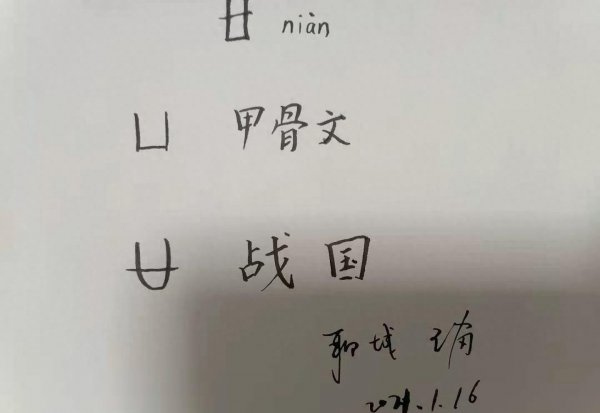 廿 niàn
凵 甲骨文
廿 战国
聊城
2021.1.16